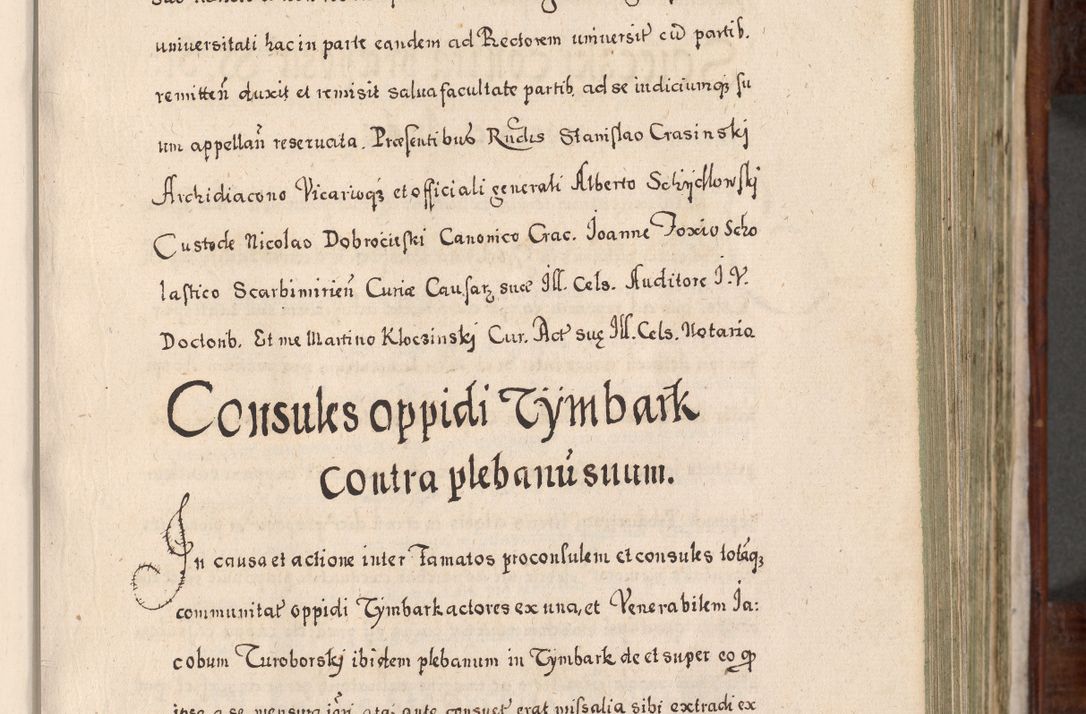 universitati hac in parte eandem ad Rectorem universit̃ cũ partib.
remitteñ duxit et remisit salva facultate partib. ad se iudiciumqȝ su
um appellañ reservata. Præsentibus Rndis Stanislao Crasinskj
Archidiacono Vicarioqȝ et officiali generali Alberto Schydlowskj
Custode Nicolao Dobrocieski Canonico Crac. Joanne Foxio Scho
lastico Scarbimirieñ Curiæ Causarȝ suæ Ill. Cels. Auditore I.V.
Doctorib. Et me Martino Kloczinskj Cur. Act suę Ill. Cels. Notario
Consules oppidi Tÿmbark
contra plebanũ suum.
In causa et actione inter Famatos proconsulem et consules totãqȝ
communitat̃ oppidi Tÿmbark actores ex una, et Venerabilem Ja:
cobum Turoborskj ibidem plebanum in Tÿmbark de et super eo qp
ipse a se mensura iari ante consuet̃ erat missalia sibi extradi ex